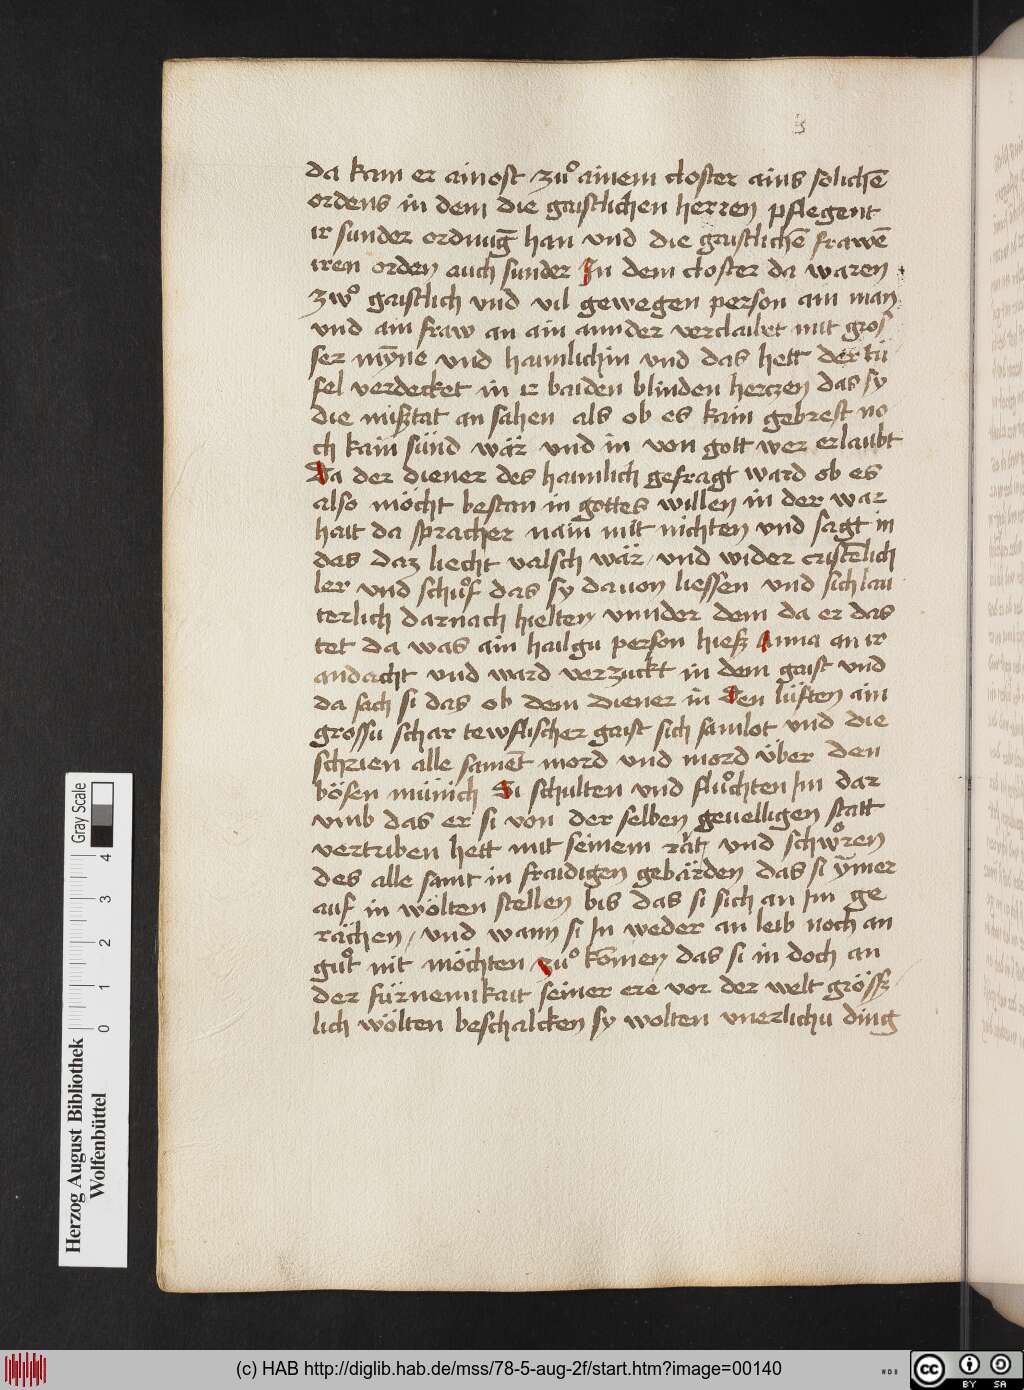 3
da kam er ainost zuͦ ainem closter ains solichē
ordens in dem die gaistlichen herren pflegent
ir sunder ordnūg han vnd die gaistlichē frawē
iren orden auch sunder In dem closter da waren
zwoͦ gaistlich vnd vil gewegen person ain man
vnd ain fraw an ain annder verclaibet mit gros
ser myñe vnd haimlichin vnd das hett der tü
fel verdecket in ir baiden blinden herczen das sy
die mißtat an sahen als ob es kain gebrest no
ch kain sünd wär vnd in von gott wer erlaubt
Da der diener des haimlich gefragt ward ob es
also möcht bestan in gottes willen in der war
hait da spracher nain mit nichten vnd sagt in
das daz liecht valsch wär / vnd wider cristēlich
ler vnd schuͦf das sy dauon liessen vnd sich lau
terlich darnach hielten vnnder dem da er das
tet da was ain hailgu person hieß Anna an ir
andacht vnd ward verzuckt in dem gaist vnd
da sach si das ob dem diener in den lüften ain
grossu schar tewflischer gaist sich samlot vnd die
schrien alle samēt mord vnd mord über den
bösen münich Si schulten vnd fluͦchten Im dar
vmb das er si von der selben geuelligen statt
vertriben hett mit seinem rät vnd schwuͦren
des alle samt in fraidigen gebärden das si ym̄er
auf in wölten stellen bis das si sich an Im ge
rächen / vnd wann si In weder an leib noch an
guͦt nit möchten zuͦ kom̄en das si in doch an
der fürnemikait seiner ere vor der welt gröss
lich wölten beschalcken sy wolten vnerlichu ding
Gray Scale
0 1 2 3 4
Herzog August Bibliothek
Wolfenbüttel
(c) HAB http://diglib.hab.de/mss/78-5-aug-2f/start.htm?image=00140
WDB
cc
BY SA